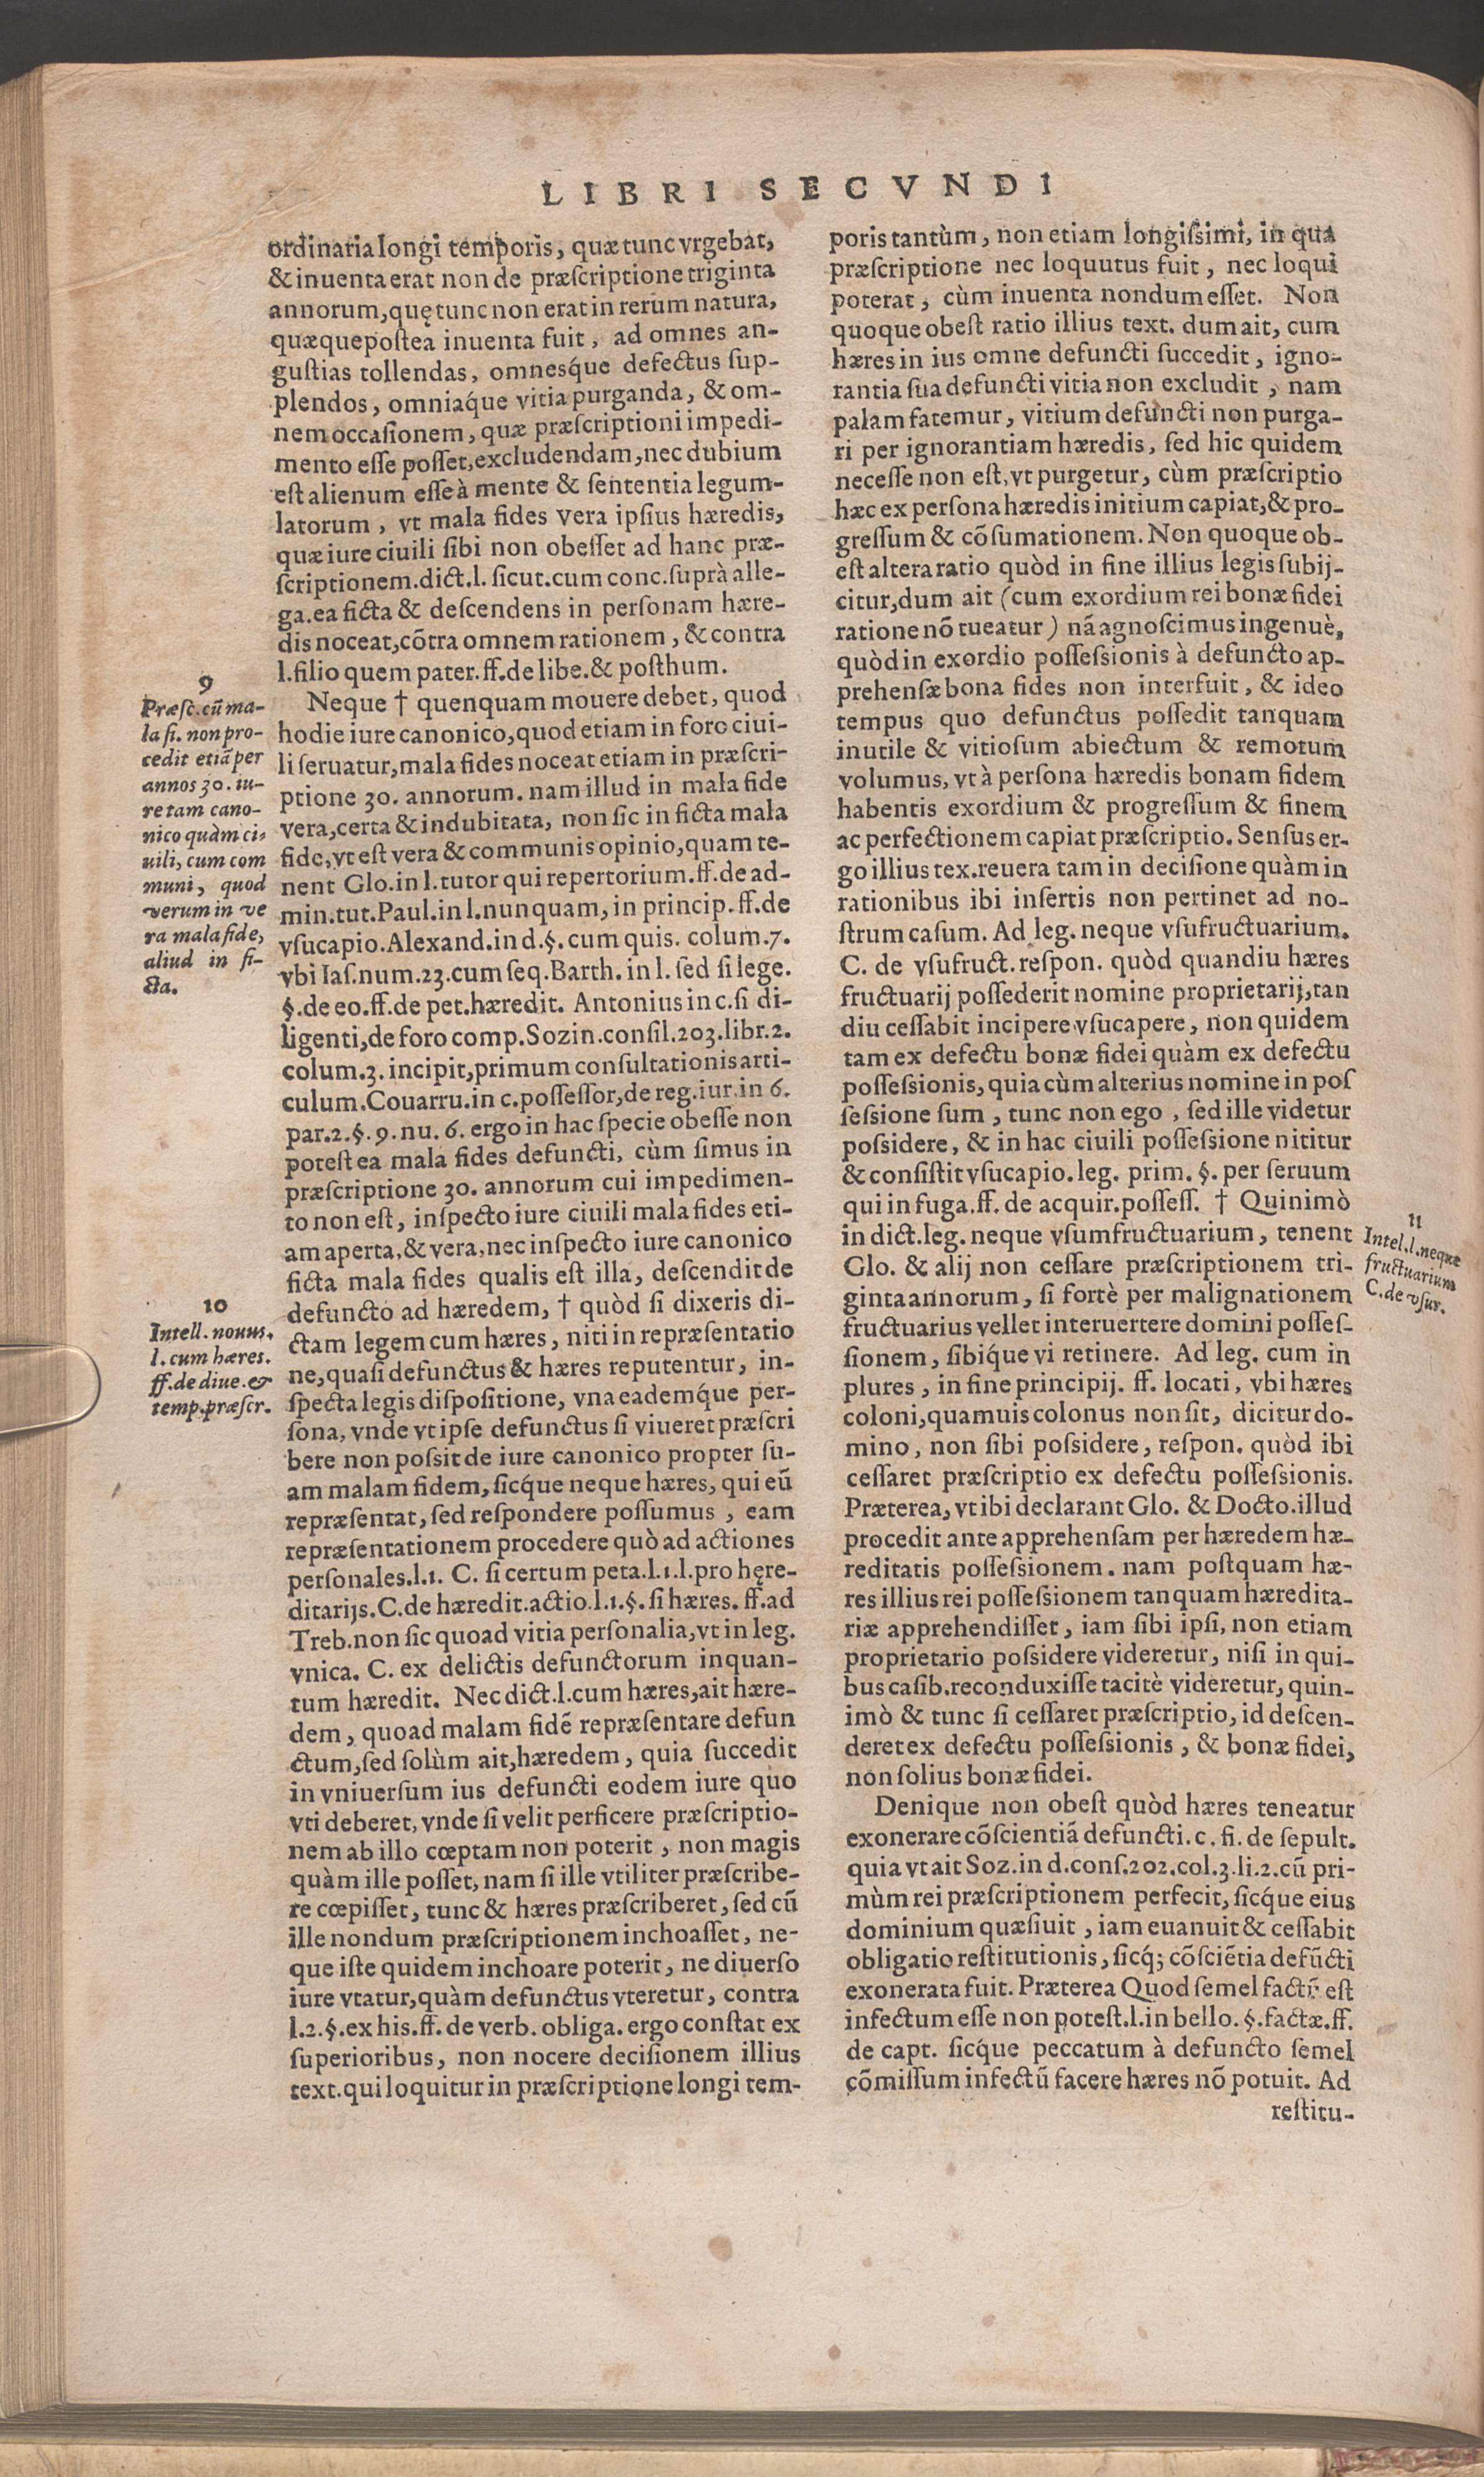 LIBRI SECVNDI
ordinaria longi temporis, quæ tunc vrgebat,
& inuenta erat non de præſcriptione triginta
annorum, quę tunc non erat in rerum natura,
quæque poſtea inuenta fuit, ad omnes an-
guſtias tollendas, omneſq́ue defectus ſup-
plendos, omniaq́ue vitia purganda, & om-
nem occaſionem, quæ præſcriptioni impedi-
mento eſſe poſſet, excludendam, nec dubium
eſt alienum eſſe à mente & ſententia legum-
latorum, vt mala fides vera ipſius hæredis,
quæ iure ciuili ſibi non obeſſet ad hanc præ-
ſcriptionem. dict. l. ſicut. cum conc. ſuprà alle-
ga. ea ficta & deſcendens in perſonam hære-
dis noceat, cõtra omnem rationem, & contra
l. filio quem pater. ff. de libe. & poſthum.
9
Præſc. cũ ma-
la fi. non pro-
cedit etiã per
annos 30. iu-
re tam cano-
nico quàm ci-
uili, cum com
muni, quod
verum in ve
ra mala fide,
aliud in fi-
cta.
Neque † quenquam mouere debet, quod
hodie iure canonico, quod etiam in foro ciui-
li ſeruatur, mala fides noceat etiam in præſcri-
ptione 30. annorum. nam illud in mala fide
vera, certa & indubitata, non ſic in ficta mala
fide, vt eſt vera & communis opinio, quam te-
nent Glo. in l. tutor qui repertorium. ff. de ad-
min. tut. Paul. in l. nunquam, in princip. ff. de
vſucapio. Alexand. in d. §. cum quis. colum. 7.
vbi Iaſ. num. 23. cum ſeq. Barth. in l. ſed ſi lege.
§. de eo. ff. de pet. hæredit. Antonius in c. ſi di-
ligenti, de foro comp. Sozin. conſil. 203. libr. 2.
colum. 3. incipit, primum conſultationis arti-
culum. Couarru. in c. poſſeſſor, de reg. iur. in 6.
par. 2. §. 9. nu. 6. ergo in hac ſpecie obeſſe non
poteſt ea mala fides defuncti, cùm ſimus in
præſcriptione 30. annorum cui impedimen-
to non eſt, inſpecto iure ciuili mala fides eti-
am aperta, & vera, nec inſpecto iure canonico
ficta mala fides qualis eſt illa, deſcendit de
defuncto ad hæredem, † quòd ſi dixeris di-
10
Intell. nouus.
l. cum hæres.
ff. de diue. &
temp. præſcr.
ctam legem cum hæres, niti in repræſentatio
ne, quaſi defunctus & hæres reputentur, in-
ſpecta legis diſpoſitione, vna eademq́ue per-
ſona, vnde vt ipſe defunctus ſi viueret præſcri
bere non poſsit de iure canonico propter ſu-
am malam fidem, ſicq́ue neque hæres, qui eũ
repræſentat, ſed reſpondere poſſumus, eam
repræſentationem procedere quò ad actiones
perſonales. l. 1. C. ſi certum peta. l. 1. l. pro hęre-
ditarijs. C. de hæredit. actio. l. 1. §. ſi hæres. ff. ad
Treb. non ſic quoad vitia perſonalia, vt in leg.
vnica. C. ex delictis defunctorum inquan-
tum hæredit. Nec dict. l. cum hæres, ait hære-
dem, quoad malam fidẽ repræſentare defun
ctum, ſed ſolùm ait, hæredem, quia ſuccedit
in vniuerſum ius defuncti eodem iure quo
vti deberet, vnde ſi velit perficere præſcriptio-
nem ab illo cœptam non poterit, non magis
quàm ille poſſet, nam ſi ille vtiliter præſcribe-
re cœpiſſet, tunc & hæres præſcriberet, ſed cũ
ille nondum præſcriptionem inchoaſſet, ne-
que iſte quidem inchoare poterit, ne diuerſo
iure vtatur, quàm defunctus vteretur, contra
l. 2. §. ex his. ff. de verb. obliga. ergo conſtat ex
ſuperioribus, non nocere deciſionem illius
text. qui loquitur in præſcriptione longi tem-
poris tantùm, non etiam longiſsimi, in qua
præſcriptione nec loquutus fuit, nec loqui
poterat, cùm inuenta nondum eſſet. Non
quoque obeſt ratio illius text. dum ait, cum
hæres in ius omne defuncti ſuccedit, igno-
rantia ſua defuncti vitia non excludit, nam
palam fatemur, vitium defuncti non purga-
ri per ignorantiam hæredis, ſed hic quidem
neceſſe non eſt, vt purgetur, cùm præſcriptio
hæc ex perſona hæredis initium capiat, & pro-
greſſum & cõſumationem. Non quoque ob-
eſt altera ratio quòd in fine illius legis ſubij-
citur, dum ait (cum exordium rei bonæ fidei
ratione nõ tueatur) nã agnoſcimus ingenuè,
quòd in exordio poſſeſsionis à defuncto ap-
prehenſæ bona fides non interfuit, & ideo
tempus quo defunctus poſſedit tanquam
inutile & vitioſum abiectum & remotum
volumus, vt à perſona hæredis bonam fidem
habentis exordium & progreſſum & finem
ac perfectionem capiat præſcriptio. Senſus er-
go illius tex. reuera tam in deciſione quàm in
rationibus ibi inſertis non pertinet ad no-
ſtrum caſum. Ad leg. neque vſufructuarium.
C. de vſufruct. reſpon. quòd quandiu hæres
fructuarij poſſederit nomine proprietarij, tan
diu ceſſabit incipere vſucapere, non quidem
tam ex defectu bonæ fidei quàm ex defectu
poſſeſsionis, quia cùm alterius nomine in poſ
ſeſsione ſum, tunc non ego, ſed ille videtur
poſsidere, & in hac ciuili poſſeſsione nititur
& conſiſtit vſucapio. leg. prim. §. per ſeruum
qui in fuga. ff. de acquir. poſſeſſ. † Quinimò
11
Intel. l. neque
fructuarium
C. de vſur.
in dict. leg. neque vſumfructuarium, tenent
Glo. & alij non ceſſare præſcriptionem tri-
ginta annorum, ſi fortè per malignationem
fructuarius vellet interuertere domini poſſeſ-
ſionem, ſibiq́ue vi retinere. Ad leg. cum in
plures, in fine principij. ff. locati, vbi hæres
coloni, quamuis colonus non ſit, dicitur do-
mino, non ſibi poſsidere, reſpon. quòd ibi
ceſſaret præſcriptio ex defectu poſſeſsionis.
Præterea, vt ibi declarant Glo. & Docto. illud
procedit ante apprehenſam per hæredem hæ-
reditatis poſſeſsionem. nam poſtquam hæ-
res illius rei poſſeſsionem tanquam hæredita-
riæ apprehendiſſet, iam ſibi ipſi, non etiam
proprietario poſsidere videretur, niſi in qui-
bus caſib. reconduxiſſe tacitè videretur, quin-
imò & tunc ſi ceſſaret præſcriptio, id deſcen-
deret ex defectu poſſeſsionis, & bonæ fidei,
non ſolius bonæ fidei.
Denique non obeſt quòd hæres teneatur
exonerare cõſcientiã defuncti. c. fi. de ſepult.
quia vt ait Soz. in d. conſ. 202. col. 3. li. 2. cũ pri-
mùm rei præſcriptionem perfecit, ſicq́ue eius
dominium quæſiuit, iam euanuit & ceſſabit
obligatio reſtitutionis, ſicq́; cõſciẽtia defũcti
exonerata fuit. Præterea Quod ſemel factũ eſt
infectum eſſe non poteſt. l. in bello. §. factæ. ff.
de capt. ſicq́ue peccatum à defuncto ſemel
cõmiſſum infectũ facere hæres nõ potuit. Ad
reſtitu-